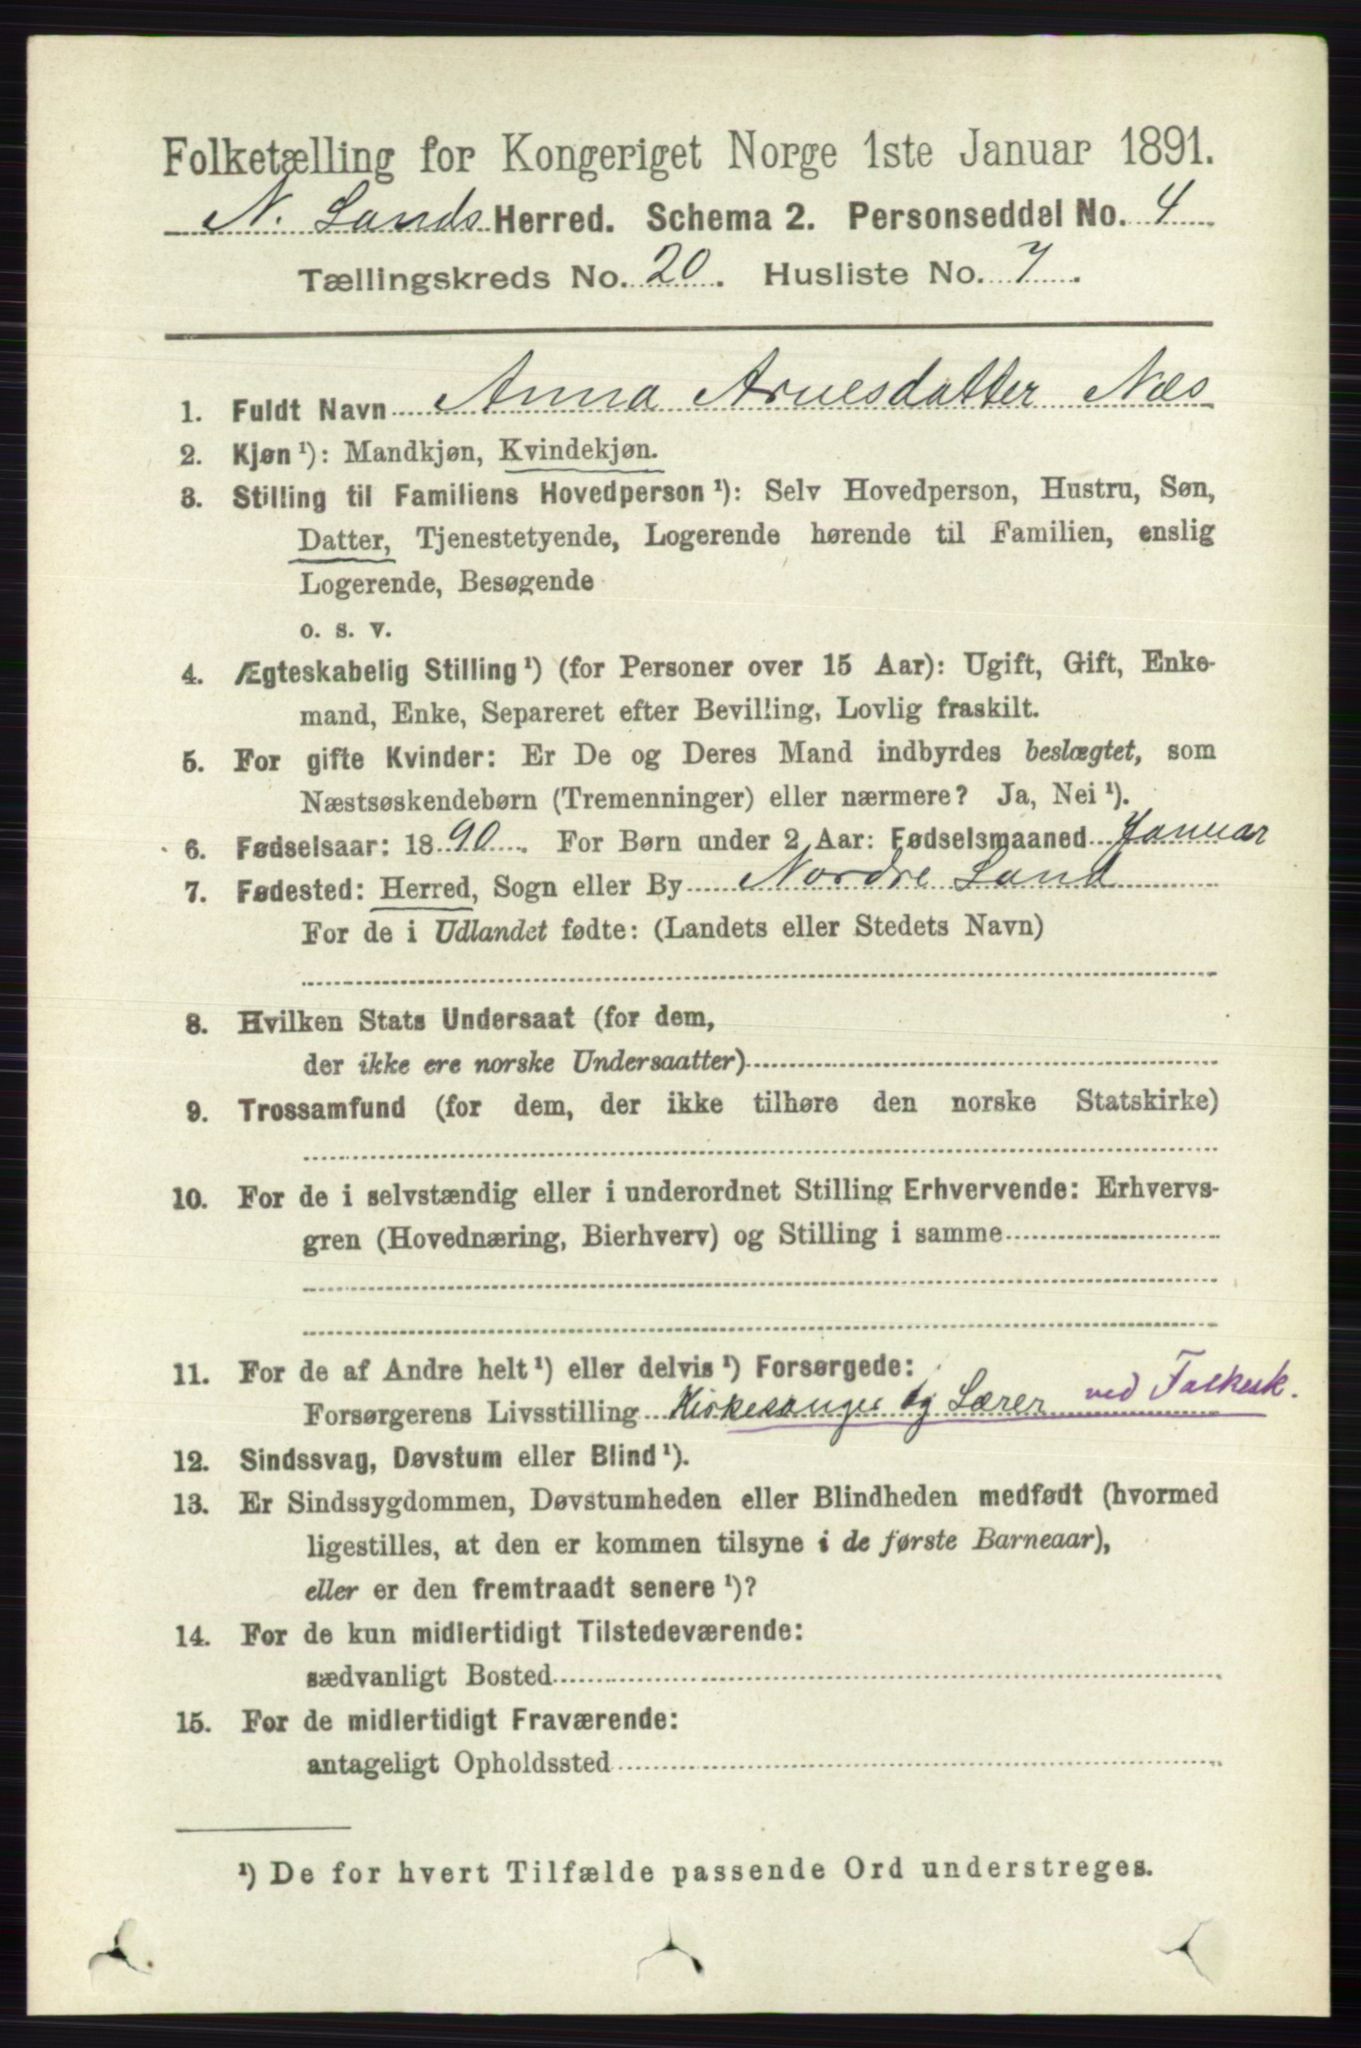 Folketælling for Kongeriget Norge 1ste Januar 1891.
N. Lands Herred. Schema 2. Personseddel No. 4
Tællingskreds No. 20. Husliste No. 7.
1. Fuldt Navn Anna Arnesdatter Næs
2. Kjøn ¹): Mandkjøn, Kvindekjøn.
3. Stilling til Familiens Hovedperson ¹): Selv Hovedperson, Hustru, Søn,
Datter, Tjenestetyende, Logerende hørende til Familien, enslig
Logerende, Besøgende
o. s. v.
4. Ægteskabelig Stilling ¹) (for Personer over 15 Aar): Ugift, Gift, Enke-
mand, Enke, Separeret efter Bevilling, Lovlig fraskilt.
5. For gifte Kvinder: Er De og Deres Mand indbyrdes beslægtet, som
Næstsøskendebørn (Tremenninger) eller nærmere? Ja, Nei ¹).
6. Fødselsaar: 1890. For Børn under 2 Aar: Fødselsmaaned Januar
7. Fødested: Herred, Sogn eller By Nordre Land
For de i Udlandet fødte: (Landets eller Stedets Navn)
8. Hvilken Stats Undersaat (for dem,
der ikke ere norske Undersaatter)
9. Trossamfund (for dem, der ikke tilhøre den norske Statskirke)
10. For de i selvstændig eller i underordnet Stilling Erhvervende: Erhvervs-
gren (Hovednæring, Bierhverv) og Stilling i samme
11. For de af Andre helt ¹) eller delvis ¹) Forsørgede:
Forsørgerens Livsstilling Kirkesanger og Lærer ved Folkesk.
12. Sindssvag, Døvstum eller Blind ¹).
13. Er Sindssygdommen, Døvstumheden eller Blindheden medfødt (hvormed
ligestilles, at den er kommen tilsyne i de første Barneaar),
eller er den fremtraadt senere ¹)?
14. For de kun midlertidigt Tilstedeværende:
sædvanligt Bosted
15. For de midlertidigt Fraværende:
antageligt Opholdssted
¹) De for hvert Tilfælde passende Ord understreges.